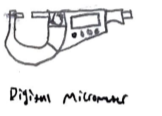 Digital Micrometer